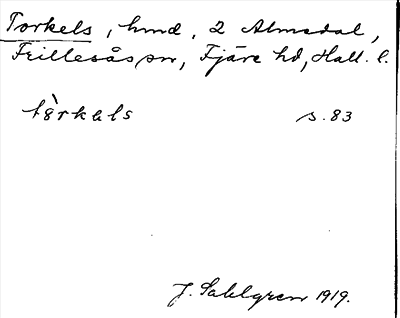 Torkels, hmd, 2 Almedal,
Frillesås sn, Fjäre hd, Hall. l.
tò̤rkəls s. 83
J. Sahlgren 1919.